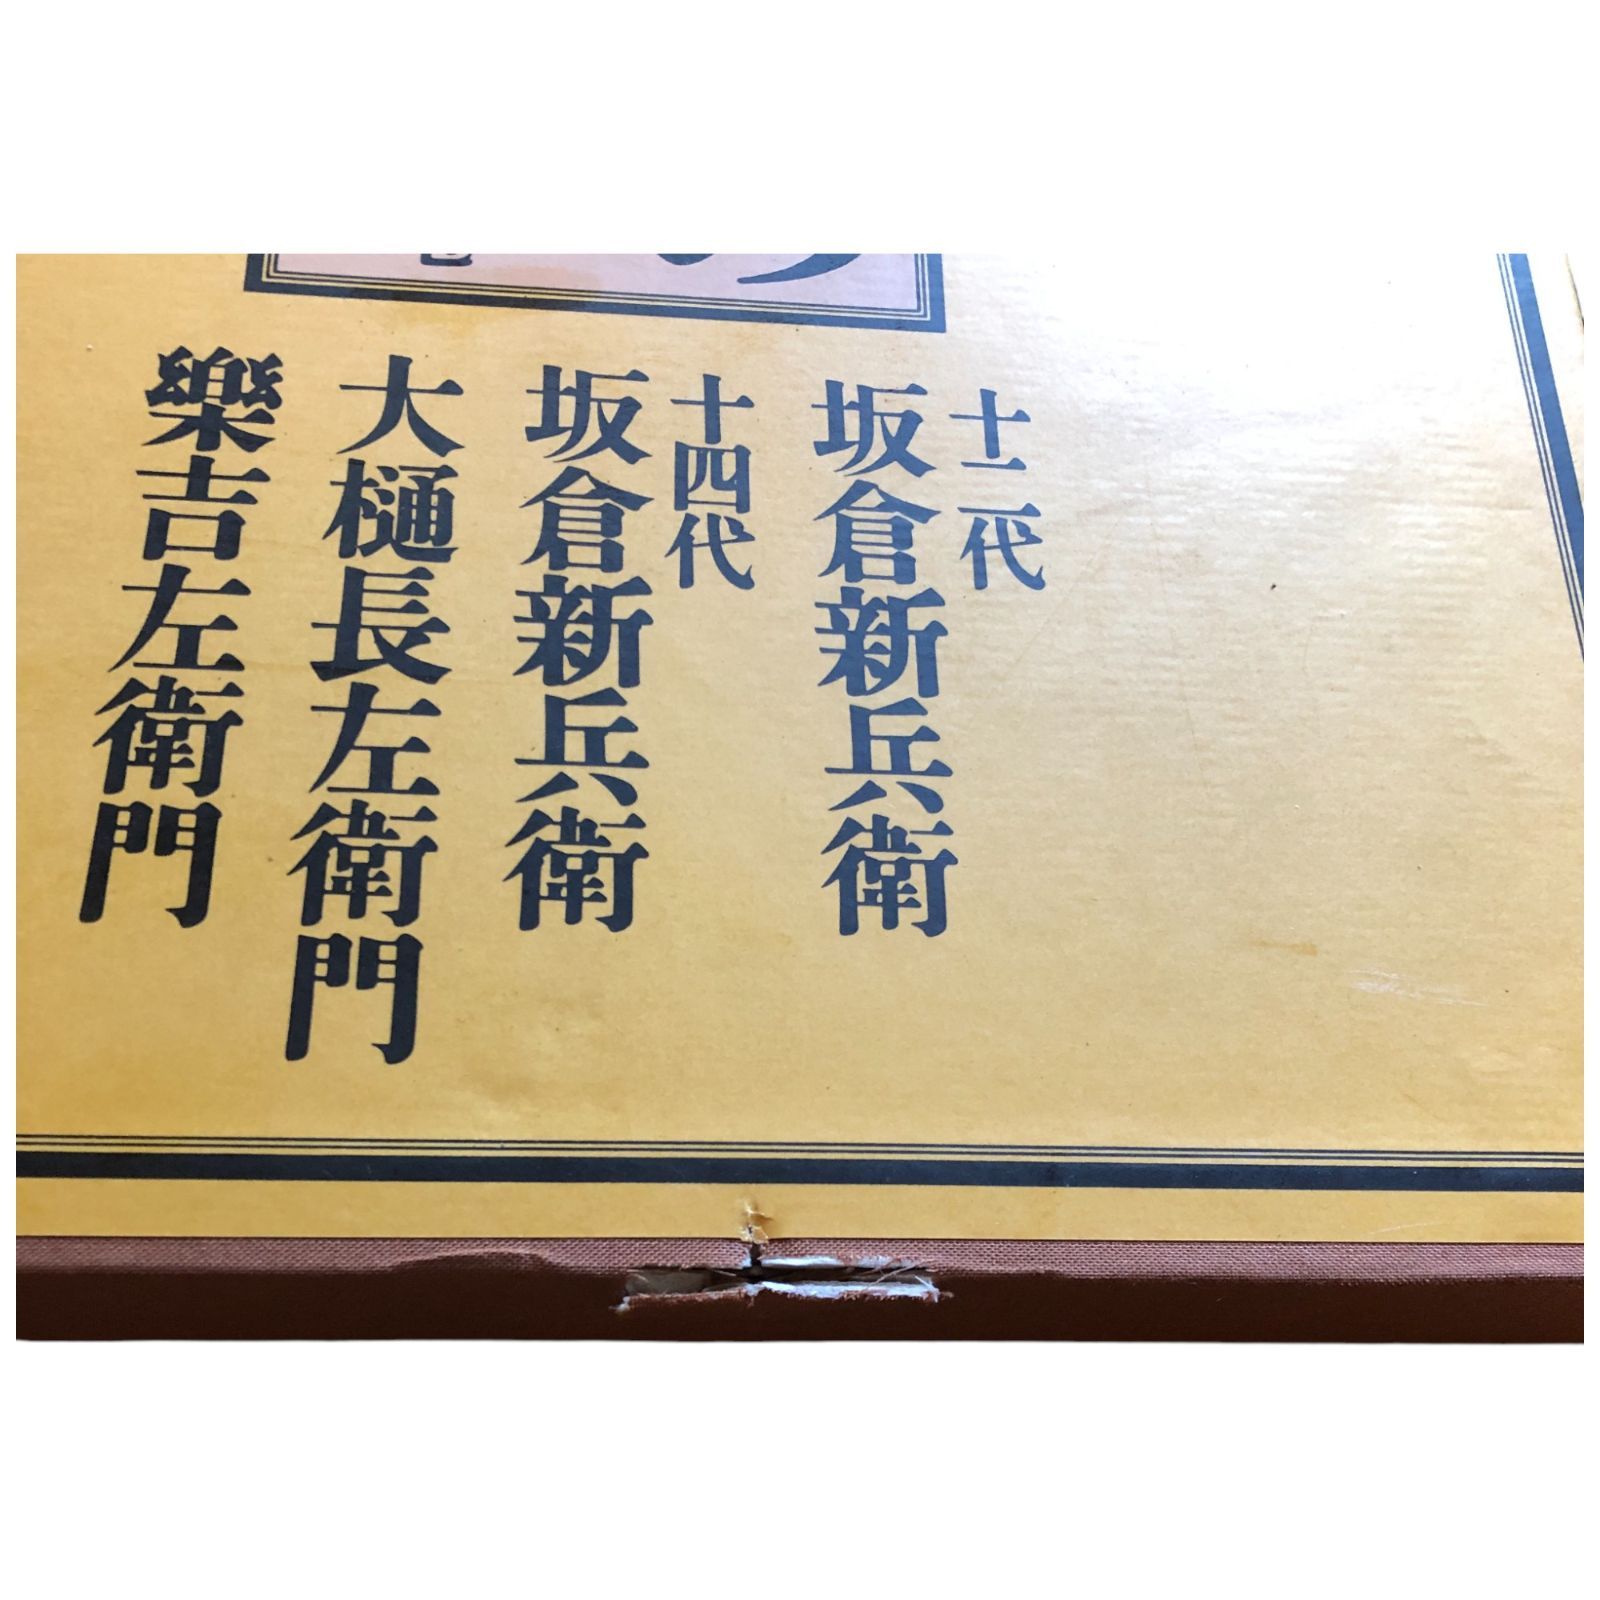 十二代
坂倉新兵衛
十四代
坂倉新兵衛
大樋長左衛門
樂吉左衛門